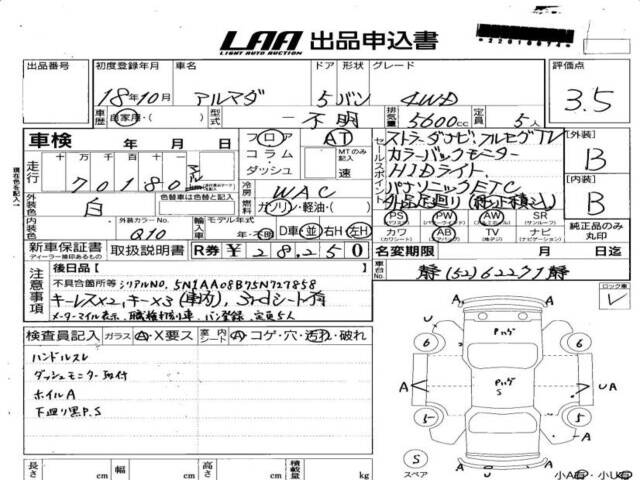 LAA 出品申込書
LIGHT AUTO AUCTION
出品番号 初度登録年月 車名 ドア 形状 グレード 評価点
18年10月 アルマダ 5 バン 4WD 3.5
車歴 自家用・( ) 型式 不明 排気量 5600cc 定員 5人
車検 年 月 日 フロア コラム・ダッシュ AT MTのみ記入 速
セールスポイント
ストラーダナビ、フルセグTV
カラーバックモニター
HIDライト
パナソニックETC
[外装] B
[内装] B
現在色を記入
走行 十 万 千 百 十 70180 マイル
外装色 白 色替車は色替と記入
冷房 WAC
燃料 ガソリン・軽油・( )
外装カラーNo. Q10
内装色
輸入車 モデル年式 年・不明 D車・並 右H・左H
PS (パワステ) PW (パワーウィンド) AW (アルミ) SR (サンルーフ)
カワ (カワシート) AB (エアバッグ) TV (地デジ) ナビ (ナビゲーション)
純正品のみ丸印
新車保証書 ディーラー捺印あるもの 取扱説明書 R券 ¥28,250
名変期限 月 日迄
車台No. 静(52)62271静
注意事項 後日品 ( )
不具合箇所等 シリアルNO. 5N1AA08B75N727858
キーレス×2、キー×3(車内)、3rdシート有
メーターマイル表示、職権打刻車、バン登録、定員5人
ロック車
検査員記入 ガラス A・X要ス 室内 シート A・コゲ・穴・汚れ・破れ
ハンドルスレ
ダッシュモニター取付
ホイルA
下廻り黒P.S
Pハゲ
6 6
A A
Pハゲ
S
A UA
5 5
A U
S
スペア
長さ cm 幅 cm 高さ cm 積載量 kg